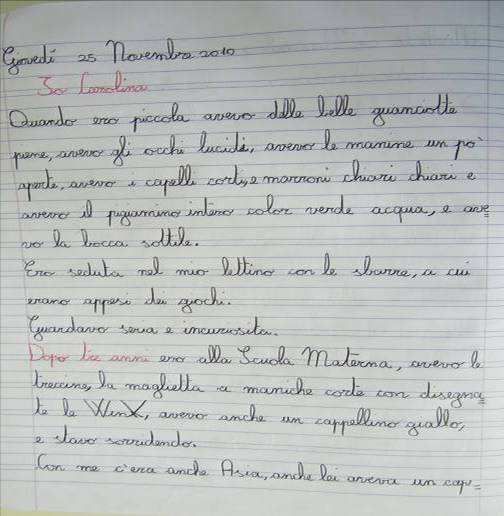 Giovedì 25 Novembre 2010
Io Carolina
Quando ero piccola avevo delle belle guanciotte
piene, avevo gli occhi lucidi, avevo le manine un po'
aperte, avevo i capelli corti, e marroni chiari chiari e
avevo il pigiamino intero color verde acqua, e ave=
vo la bocca sottile.
Ero seduta nel mio lettino con le sbarre, a cui
erano appesi dei giochi.
Guardavo seria e incuriosita.
Dopo tre anni ero alla Scuola Materna, avevo le
treccine, la maglietta a maniche corte con disegna=
te le WinX, avevo anche un cappellino giallo,
e stavo sorridendo.
Con me c'era anche Asia, anche lei aveva un cap=